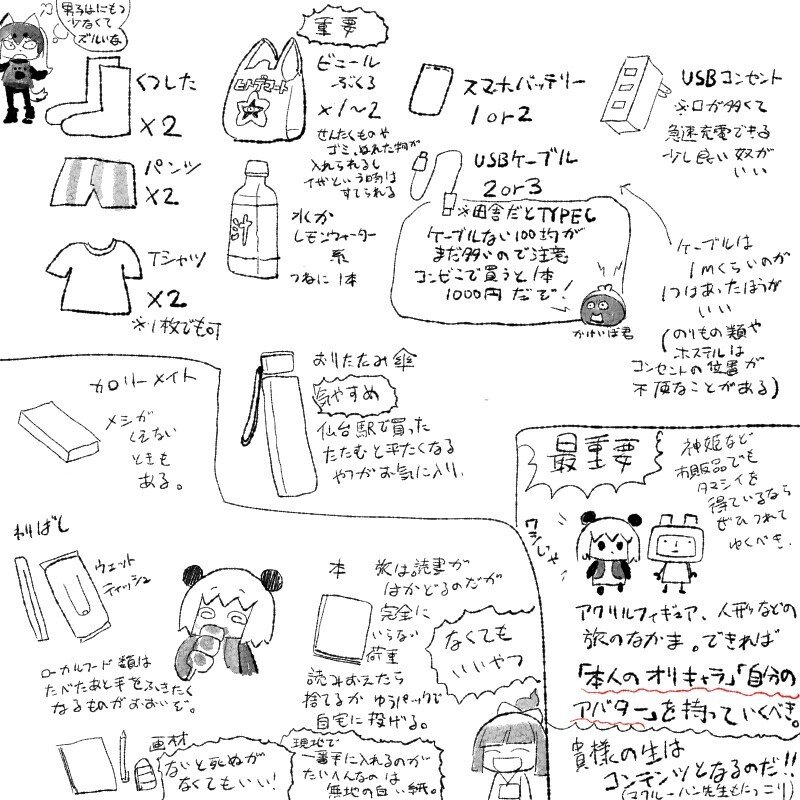 男子はにもつ
少なくて
ズルいな
くつした
×2
パンツ
×2
Tシャツ
×2
※1枚でも可
重要
ビニール
ぶくろ
×1〜2
せんたくものや
ゴミ、ぬれた物が
入れられるし
イザという時は
すてられる
汁
水か
レモンウォーター
系
つねに1本
スマホバッテリー
1or2
USBケーブル
2or3
※田舎だとTYPEC
ケーブルない100均が
まだ多いので注意
コンビニで買うと1本
1000円だぞ!
かけいぼ君
USBコンセント
※口が多くて
急速充電できる
少し良い奴が
いい
ケーブルは
1mくらいのが
1つはあったほうが
いい
(のりもの類や
ホステルは
コンセントの位置が
不便なことがある)
カロリーメイト
メシが
くえない
ときも
ある。
おりたたみ傘
気やすめ
仙台駅で買った
たたむと平たくなる
やつがお気に入り。
わりばし
ウェット
ティッシュ
ローカルフード類は
たべたあと手をふきたく
なるものがおおいぞ。
本
旅は読書が
はかどるのだが
完全に
いらない
荷重
読みおえたら
捨てるかゆうパックで
自宅に投げる。
なくても
いいやつ
画材
ないと死ぬが
なくてもいい!
現地で
一番手に入れるのが
たいへんなのは
無地の白い紙。
最重要
神姫など
市販品でも
タマシイを
得ているなら
ぜひつれて
ゆくべき。
ワシじゃ
アクリルフィギュア、人形などの
旅のなかま。できれば
「本人のオリキャラ」「自分の
アバター」を持っていくべき。
貴様の生は
コンテンツとなるのだ!!
(マクルーハン先生もにっこり)